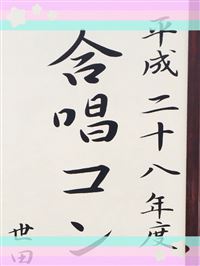 平成二十八年度
合唱コン
世田